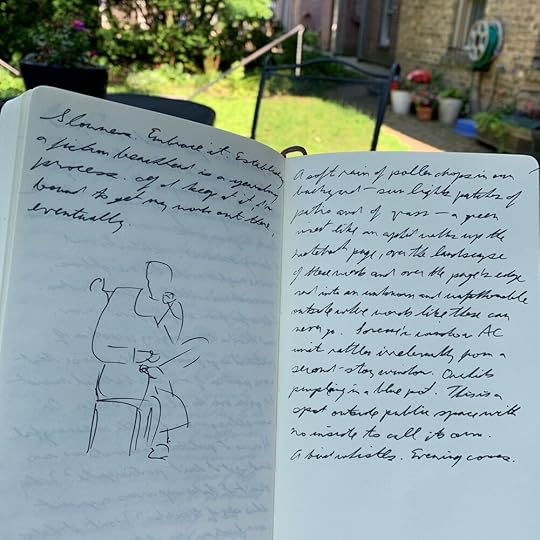 Slowness. Embrace it. Establishing
a fiction beachhead is a yearslong
process. If I keep at it, I'm
bound to get my work out there,
eventually.
A soft rain of pollen drops in our
backyard — sun lights patches of
patio and of grass — a green
insect like an aphid walks up the
notebook page, over the landscape
of these words and over the page's edge
and into an unknown and unfathomable
outside where words like these can
never go. Someone's window AC
unit rattles irrelevantly from a
second-story window. Orchids
purpling in a blue pot. This is a
spot outside public space with
no inside to call its own.
A bird whistles. Evening comes.